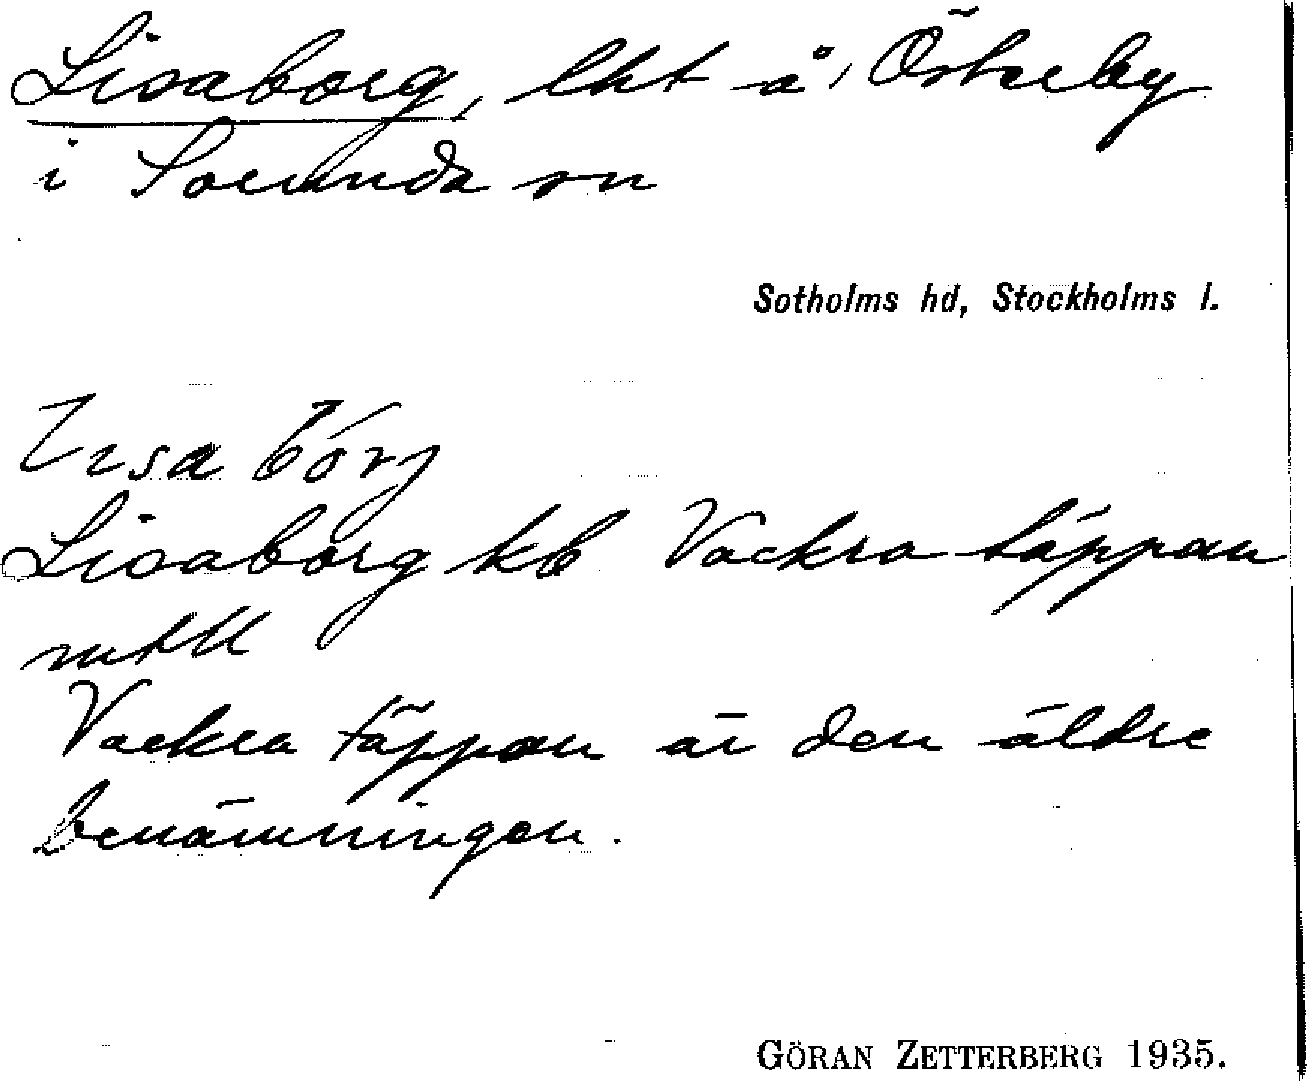 Lisaborg, lht å Österby
i Sorunda sn
Sotholms hd, Stockholms l.
Lisaborg kb Vackra täppan
mtll
Vackra täppan är den äldre
benämningen.
GÖRAN ZETTERBERG 1935.